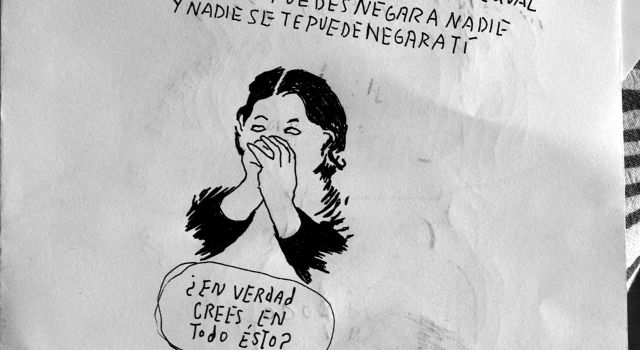 PUEDES NEGAR A NADIE
Y NADIE SE TE PUEDE NEGAR A TÍ
¿EN VERdAd
CREES EN
TOdO ÉSTO?